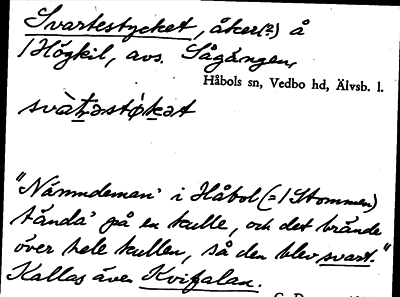 Svartestycket, åker(?) å
1 Högkil, avs. Sågängen,
Håbols sn, Vedbo hd, Älvsb. l.
svàt̠əstýk̠ət
"Nämndeman' i Håbol (= 1 Stommen)
tända' på en kulle, och det brände
över hele kullen, så den blev svart."
Kallas även